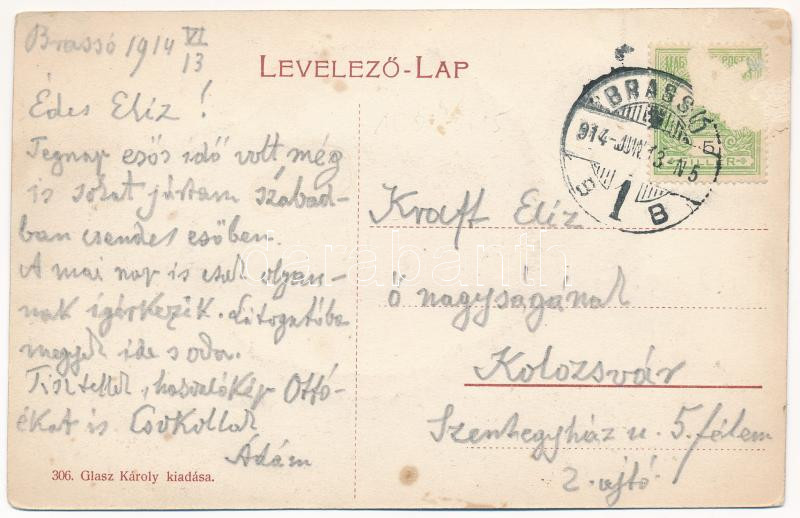 Brassó 1914 VI/13
LEVELEZŐ-LAP
Édes Elíz!
Tegnap esős idő volt még
is sokat jártam szabad-
ban csendes esőben.
A mai nap is csak olyan-
nak ígérkezik. Látogatóba
megyek ide s oda.
Tisztellek, hasonlókép Ottó-
ékat is Csokollak
Ádám
306. Glasz Károly kiadása.
BRASSÓ
914 JUN. 13 N 5
1
B
FILLÉR
Kraft Elíz
ő nagyságának
Kolozsvár
Szentegyház u. 5.
2. ajtó
darabanth